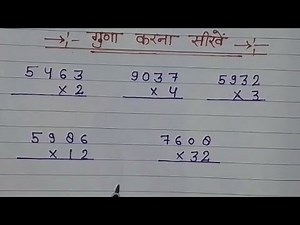 →!- गुणा करना सीखें -!→
5463 9037 5932
×2 ×4 ×3
5986 7608
×12 ×32